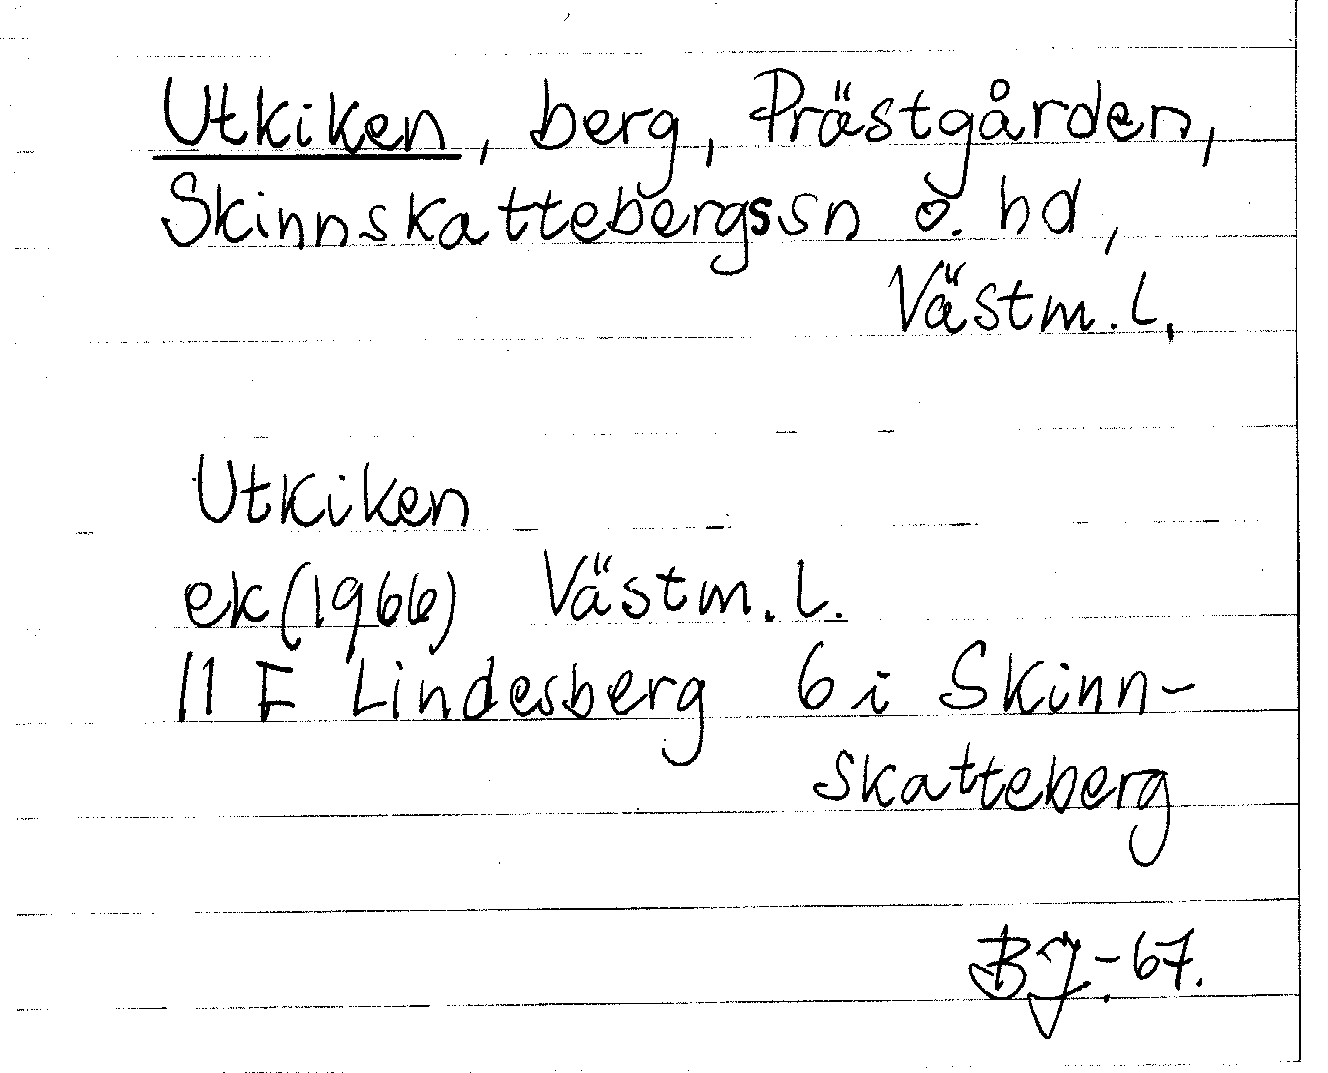 Utkiken, berg, Prästgården,
Skinnskattebergssn o. hd,
Västm. l.
Utkiken
ek (1966) Västm. l.
11 F Lindesberg 6 i Skinn-
skatteberg
BJ.-67.